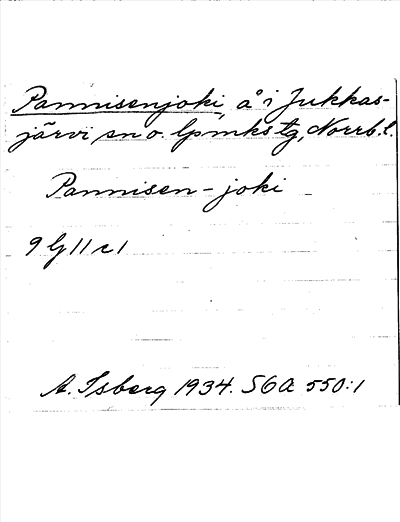 Pannisenjoki, å i Jukkas-
järvi sn o. lpmks tg, Norrb. l.
Pannisen-joki
A. Isberg 1934. SGA 550:1